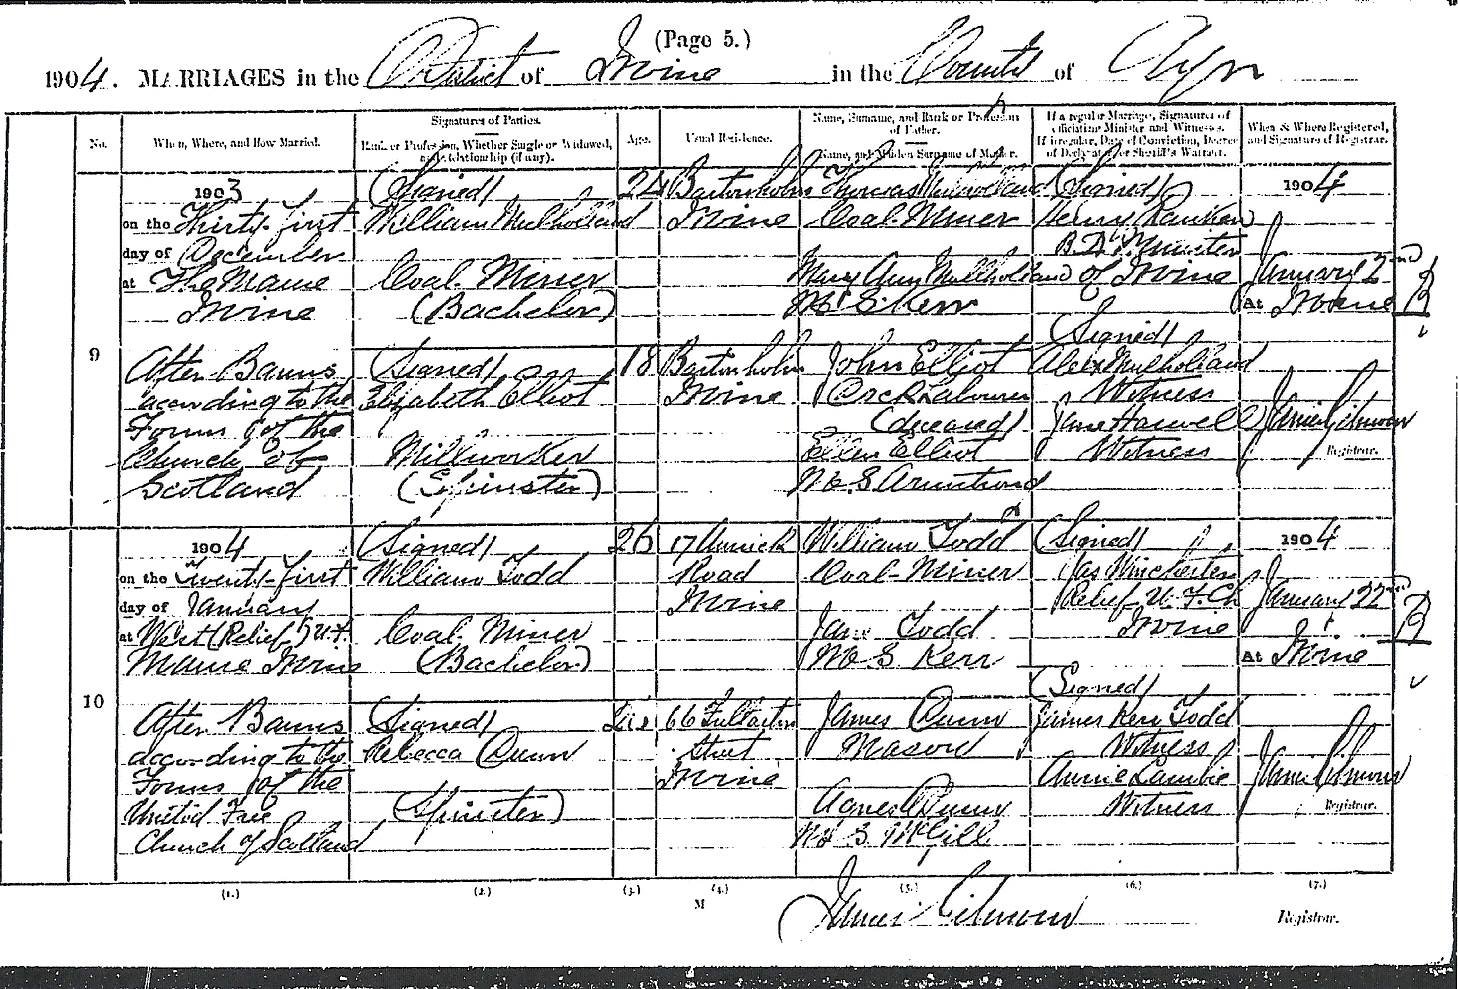 (Page 5.)
1904. MARRIAGES in the District of Irvine in the County of Ayr
No.
When, Where, and How Married.
Signatures of Parties.
Rank or Profession, Whether Single or Widowed, and Relationship (if any).
Age.
Usual Residence.
Name, Surname, and Rank or Profession of Father.
Name, and Maiden Surname of Mother.
If a regular Marriage, Signatures of officiating Minister and Witnesses.
If irregular, Date of Conviction, Decree of Declarator, or Sheriff's Warrant.
When & Where Registered, and Signature of Registrar.
9
1903
on the Thirty-first
day of December
at The Manse
Irvine
After Banns
according to the
Forms of the
Church of
Scotland
(Signed)
William Mulholland
Coal Miner
(Bachelor)
(Signed)
Elizabeth Elliot
Millworker
(Spinster)
24
18
Bartonholm
Irvine
Bartonholm
Irvine
Thomas Mulholland
Coal Miner
Mary Ann Mulholland
M.S. Kerr
John Elliot
Labourer
(deceased)
Ellen Elliot
M.S. Armstrong
(Signed)
Henry Ranken
B.D. Minister
of Irvine
(Signed)
Alex Mulholland
Witness
Jane
Witness
1904
January 2nd
At Irvine
James Gilmour
Registrar.
10
1904
on the Twenty-first
day of January
at West (Relief) U.F.
Manse Irvine
After Banns
according to the
Forms of the
United Free
Church of Scotland
(Signed)
William Todd
Coal Miner
(Bachelor)
(Signed)
Rebecca Dunn
(Spinster)
26
17 Annick
Road
Irvine
66 Fullarton
Street
Irvine
William Todd
Coal-Miner
Jane Todd
M.S. Kerr
James Dunn
Mason
Agnes Dunn
M.S. McGill
(Signed)
Jas Winchester
Relief U.F. Ch
Irvine
(Signed)
James Kerr Todd
Witness
Annie Lambie
Witness
1904
January 22nd
At Irvine
James Gilmour
Registrar.
(1.) (2.) (3.) (4.) (5.) (6.) (7.)
M
James Gilmour Registrar.